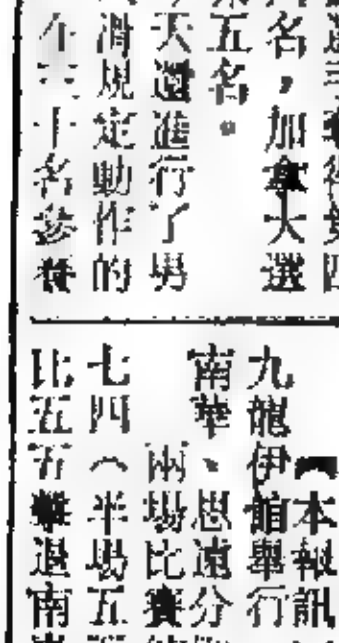 名，加拿大選
五名。
天還進行了男
滑規定動作的
十名參賽
【本報訊
九龍伊館舉行
南華、思遠分
兩場比賽
七四（半場五
比五五擊退南